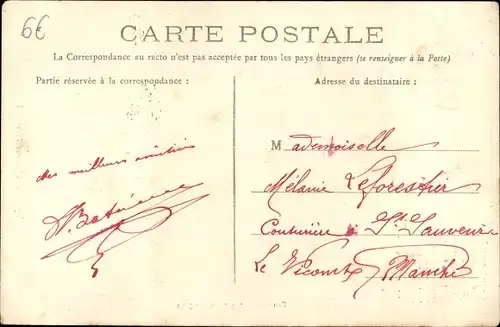 6€
CARTE POSTALE
La Correspondance au recto n'est pas acceptée par tous les pays étrangers (se renseigner à la Poste)
Partie réservée à la correspondance :
Adresse du destinataire :
Mademoiselle
Mes meilleurs amitiés
Mélanie Leforestier
Couturière à St Sauveur
Le Vicomte Manche